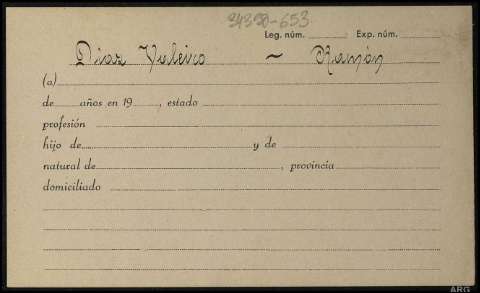 34390-653
Leg. núm. Exp. núm.
Diaz Valeiro ~ Ramón
(a)
de años en 19 , estado
profesión
hijo de y de
natural de , provincia
domiciliado
ARG